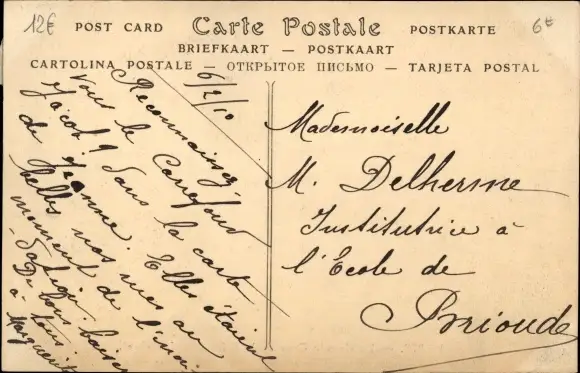 12€
6€
POST CARD
Carte Postale
POSTKARTE
BRIEFKAART — POSTKAART
CARTOLINA POSTALE — ОТКРЫТОЕ ПИСЬМО — TARJETA POSTAL
6/2/10
Reconnaissez
vous le Carrefour
Jacob? Dans la carte
de Jeanne. Elles étaient
belles nos rues au
moment de l'inon
dation
De bons baisers
à tous
à Marguerite
Mademoiselle
M. Delherme
Institutrice à
l'École de
Brioude